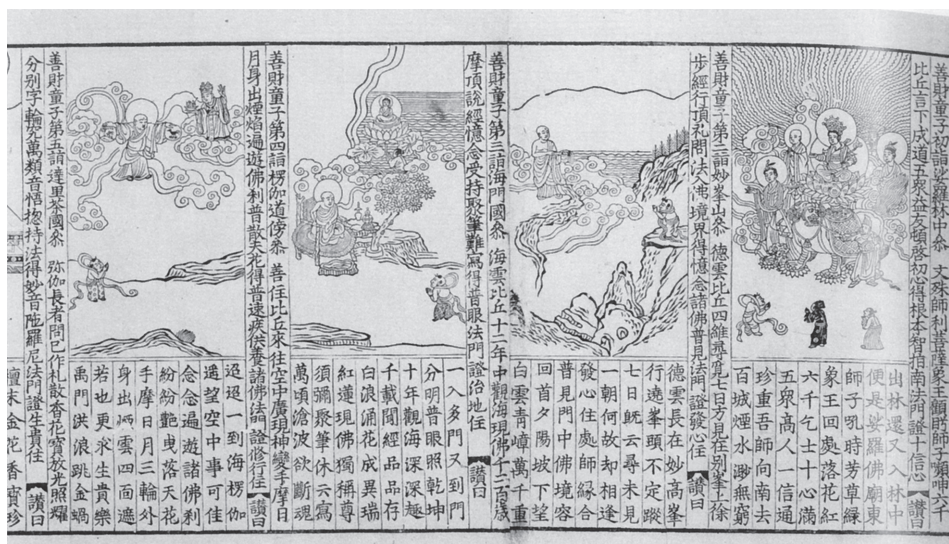 善財童子初詣娑羅林中叅　文殊師利菩薩象王回顧師子嚬呻六千
比丘言下成道五衆益友頓啓初心得根本智指南法門證十信心　讚曰
出林還又入林中
便是娑羅佛廟東
師子吼時芳草緑
象王回處落花紅
六千乞士十心滿
五衆高人一信通
珍重吾師向南去
百城煙水渺無窮
善財童子第二詣妙峯山叅　德雲比丘四維尋覓七日方見在別峯上徐
步經行頂礼問法入佛境界得憶念諸佛普見法門證發心住　讚曰
德雲長在妙高峯
行遶峯頭不定蹤
七日既云尋未見
一朝何故却相逢
發心住處師縁合
普見門中佛境容
回首夕陽坡下望
白雲青嶂萬千重
善財童子第三詣海門國叅　海雲比丘十二年中觀海現佛千二百歳
摩頂說經憶念受持聚筆難寫得普眼法門證治地住　讚曰
一入多門又到門
分明普眼照乾坤
十年觀海深深趣
千載聞經品品存
白浪涌花成異瑞
紅蓮現佛獨稱尊
須彌聚筆休云寫
萬頃滄波欲斷魂
善財童子第四詣楞伽道傍叅　善住比丘來往空中廣現神變手摩日
月身出煙焰遍遊佛刹普散天花得普速疾供養諸佛法門證修行住　讚曰
迢迢一到海楞伽
遥望空中事可佳
念念遍遊諸佛刹
紛紛艷曳落天花
手摩日月三輪外
身出烟雲四面遮
若也更求生貴樂
禹門洪浪跳金蝸
善財童子第五詣達里茶國叅　弥伽長者問已作礼散香花寶放光照耀
分別字輪究萬類音悟揔持法得妙音陁羅尼法門證生貴住　讚曰
檀末金花香寶珍